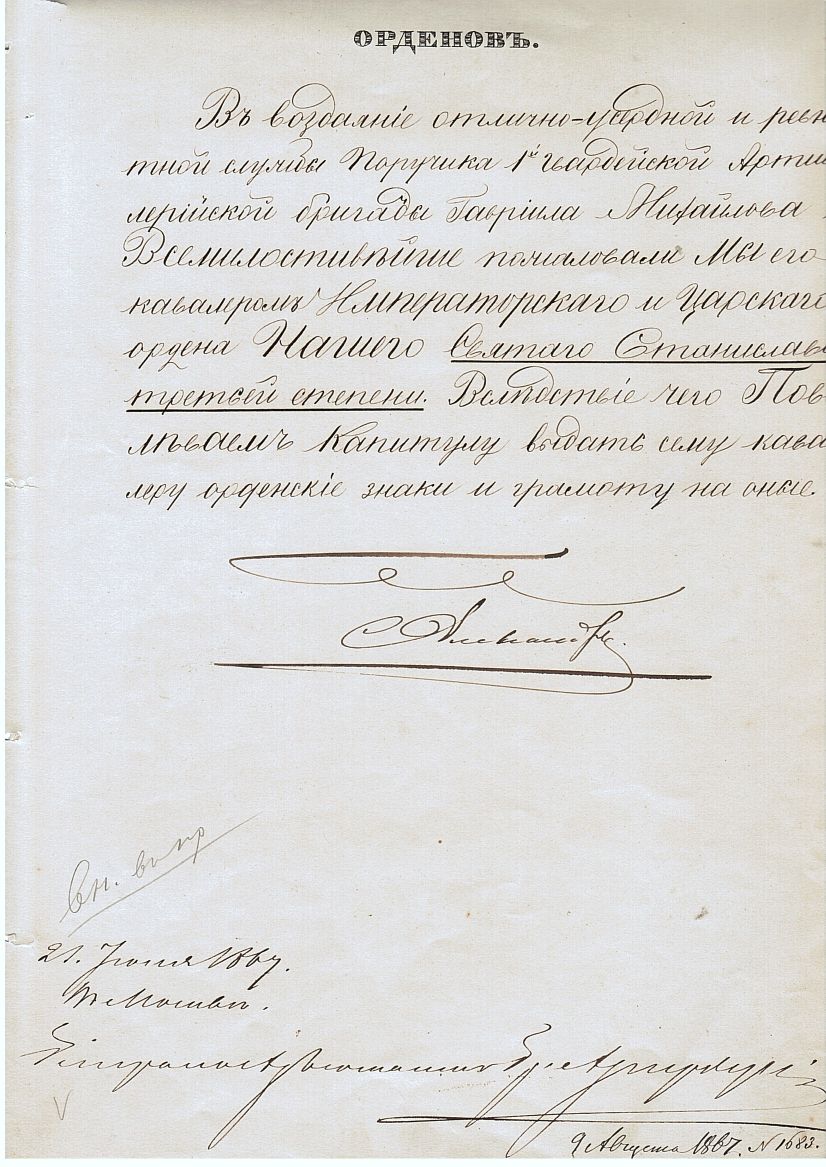 ОРДЕНОВЪ.
Въ воздаяніе отлично-усердной и ревно
стной службы Поручика 1й Гвардейской Артил
лерійской бригады Гавріила Михайлова
Всемилостивѣйше пожаловали Мы его
кавалеромъ Императорскаго и Царскаго
ордена Нашего Святаго Станислава
третьей степени. Вслѣдствіе чего Пов
лѣваемъ Капитулу выдать сему кава
леру орденскіе знаки и грамоту на оные.
Александръ
21. Іюля 1867.
въ Москвѣ.
9 Августа 1867. N 1683.